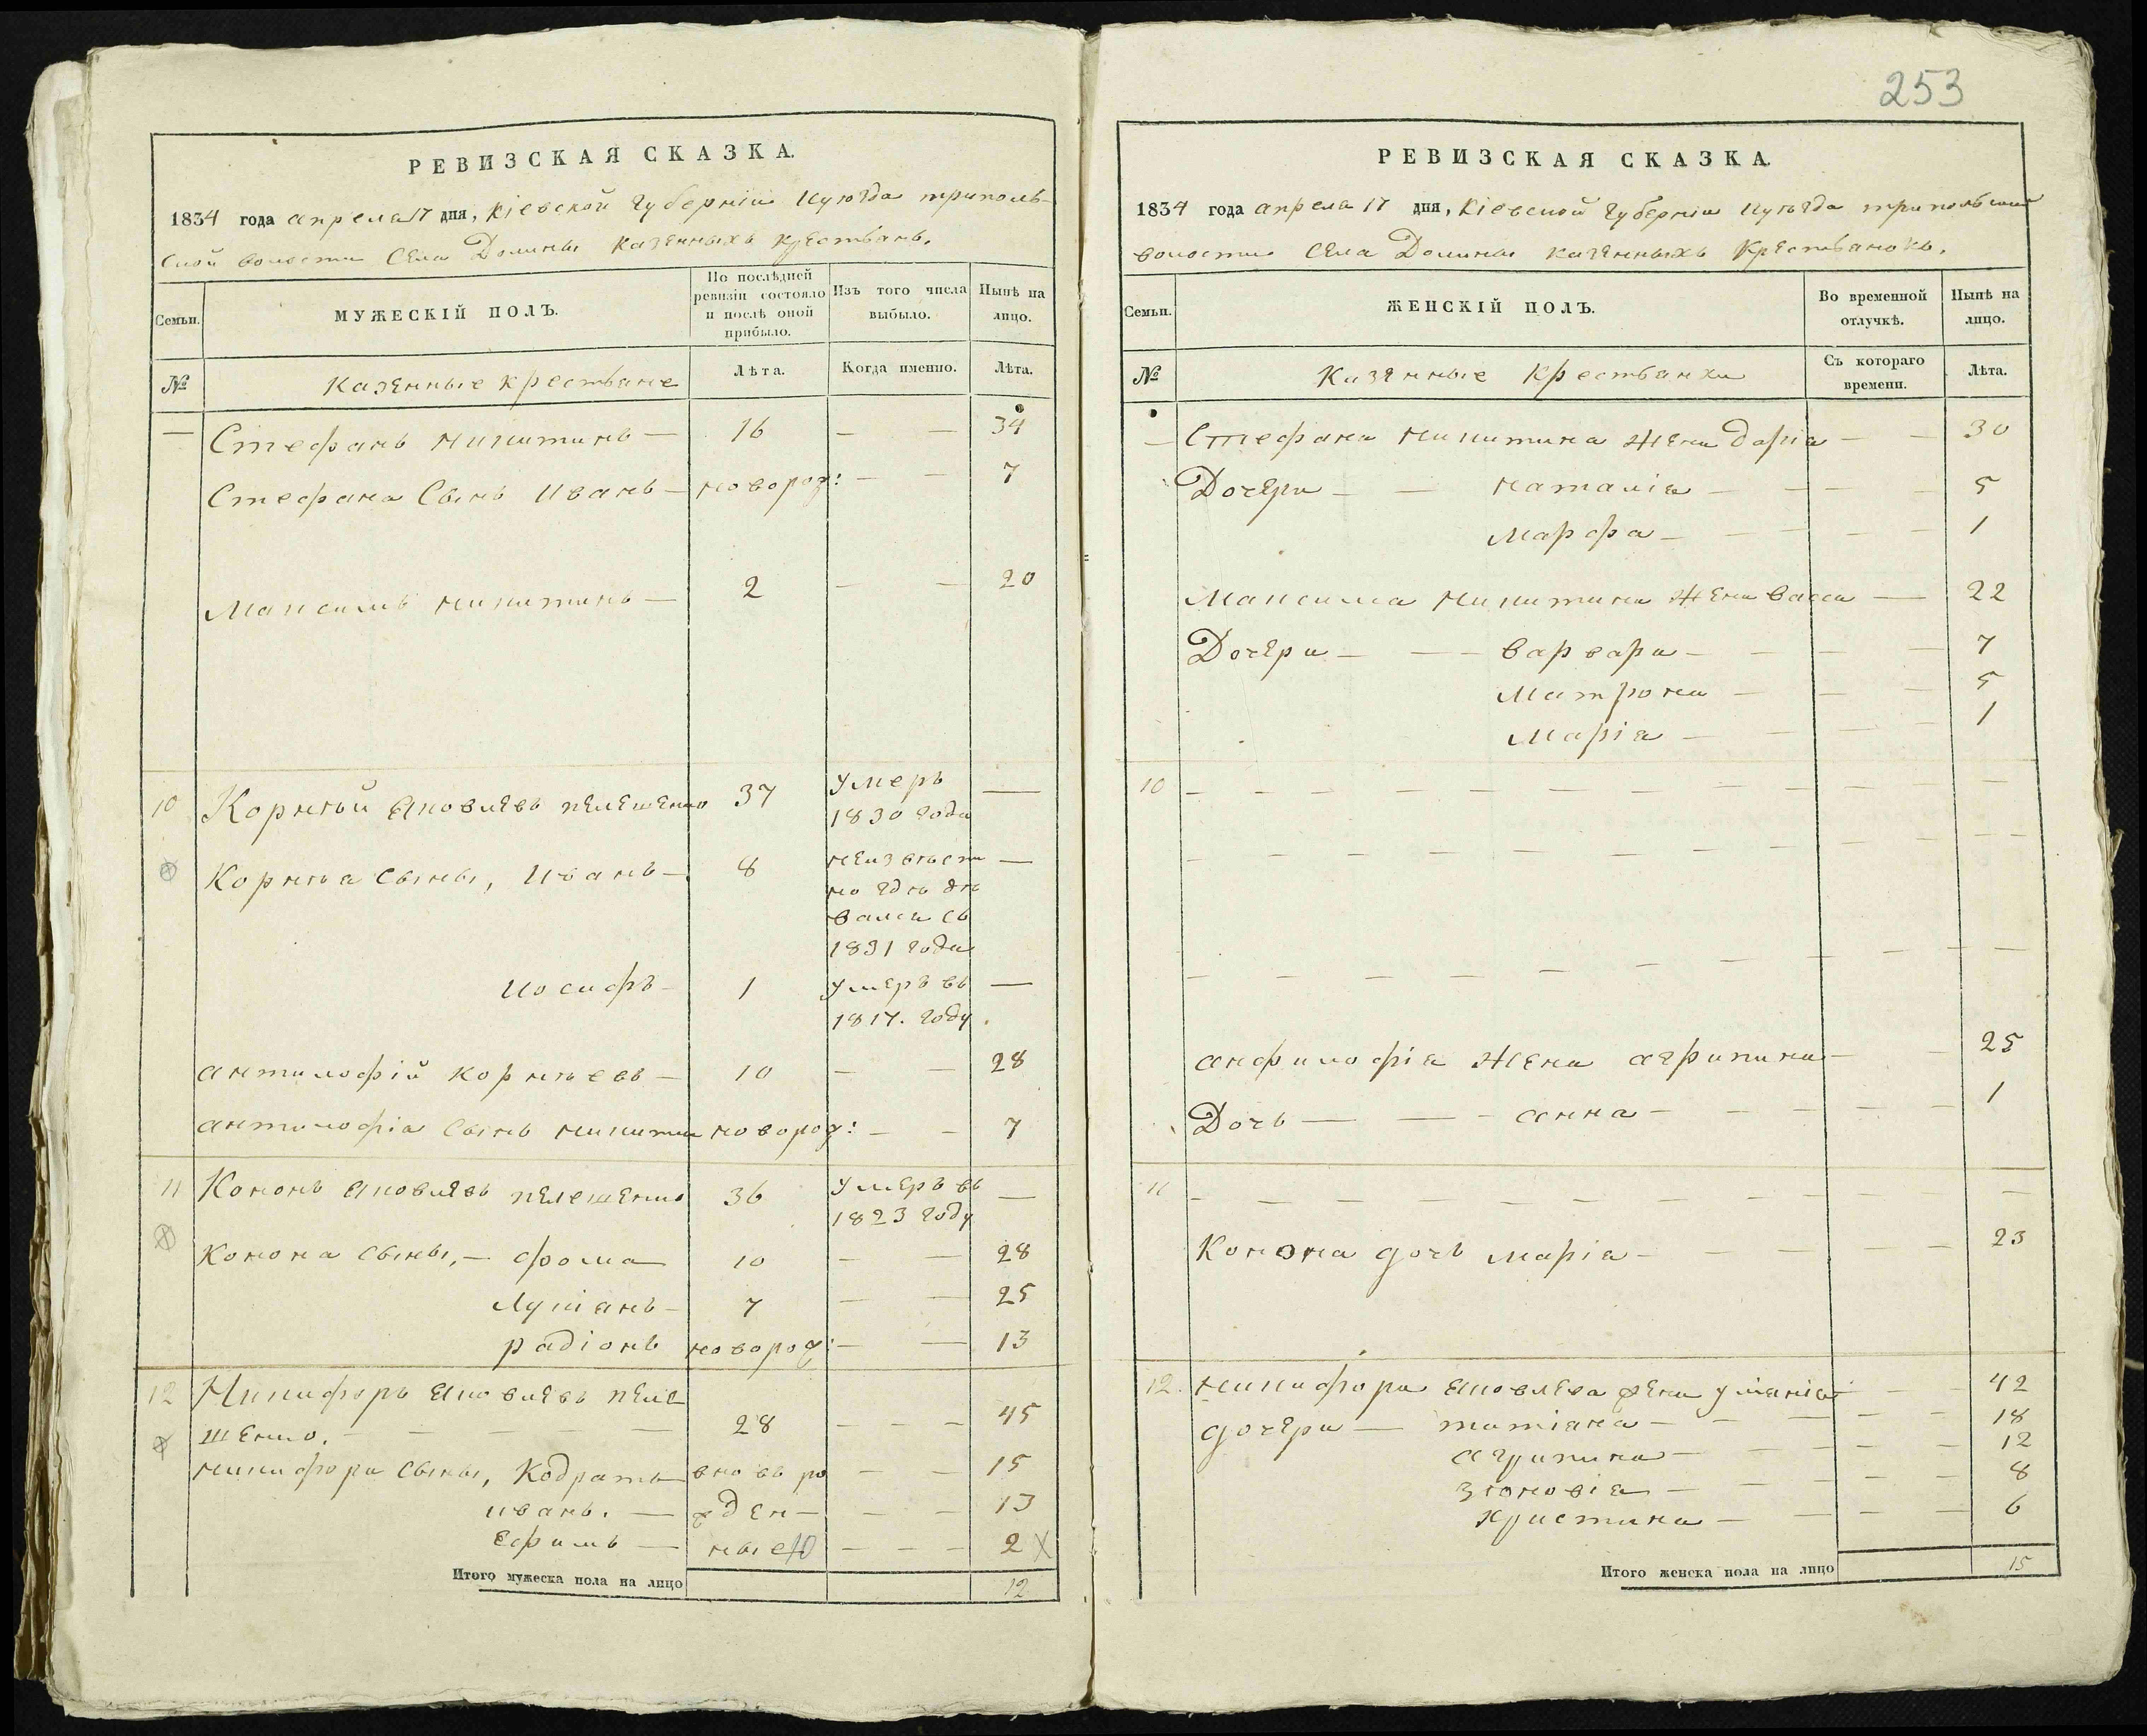 253
РЕВИЗСКАЯ СКАЗКА.
1834 года апреля 17 дня, Кіевской Губерніи и уѣзда триполь-
ской волости Села Долины казенныхъ крестьянъ.
Семьи.
МУЖЕСКІЙ ПОЛЪ.
По послѣдней
ревизіи состояло
и послѣ оной
прибыло.
Изъ того числа
выбыло.
Нынѣ на
лицо.
№
Казенные крестьяне
Лѣта.
Когда именно.
Лѣта.
— Стефанъ Никитинъ — 16 — — 34
Стефана Сынъ Иванъ — новорож: — — 7
Максимъ Никитинъ — 2 — — 20
10 Корнѣй Яковлевъ пелешенко 37 Умеръ —
1830 года
Корнѣя Сыны, Иванъ — 8 неизвѣст —
но гдѣ дѣ
вался съ
1831 года
Иосифъ — 1 Умеръ въ —
1817. году.
антилофій Корнѣевъ — 10 — — 28
антилофія Сынъ Никита новорож: — — 7
11 Кононъ Яковлевъ пелешенко 36 Умеръ въ —
1823 году
Конона Сыны, — фома 10 — — 28
Лукіанъ — 7 — — 25
радіонъ новорож: — — 13
12 Никифоръ Яковлевъ пеле
шенко. — — — — — 28 — — — 45
Никифора Сыны, Кодратъ вновь ро — — 15
иванъ. — жден — — — 13
Ефимъ — ные 10 — — — 2 х
Итого мужеска пола на лицо 12
РЕВИЗСКАЯ СКАЗКА.
1834 года апреля 17 дня, Кіевской Губерніи и уѣзда трипольской
волости Села Долины казенныхъ Крестьянокъ.
Семьи.
ЖЕНСКІЙ ПОЛЪ.
Во временной
отлучкѣ.
Нынѣ на
лицо.
№
Казенные Крестьянки
Съ котораго
времени.
Лѣта.
— Стефана Никитина жена дарія — — 30
Дочери — — наталія — — — — 5
Марфа — — — — — 1
Максима Никитина жена васса — 22
Дочери — — — варвара — — — — 7
Матрона — — — 5
Марія — — — — — 1
10 — — — — — — — — — — —
анфилофія жена агрипина — — 25
Дочь — — — анна — — — — — 1
11 — — — — — — — — — — —
Конона дочь марія — — — — 23
12. Никифора Яковлева жена уліанія — — 42
дочери — татіана — — — — — 18
агрипина — — — — — 12
зѣновія — — — — — 8
Христина — — — — 6
Итого женска пола на лицо 15